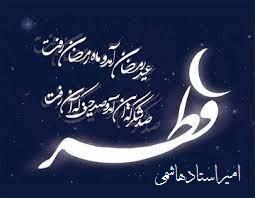 عید رمضان آمد و ماه رمضان رفت
صد شکر که این آمد و صد حیف که آن رفت
فطر
امیر استاد هاشمی